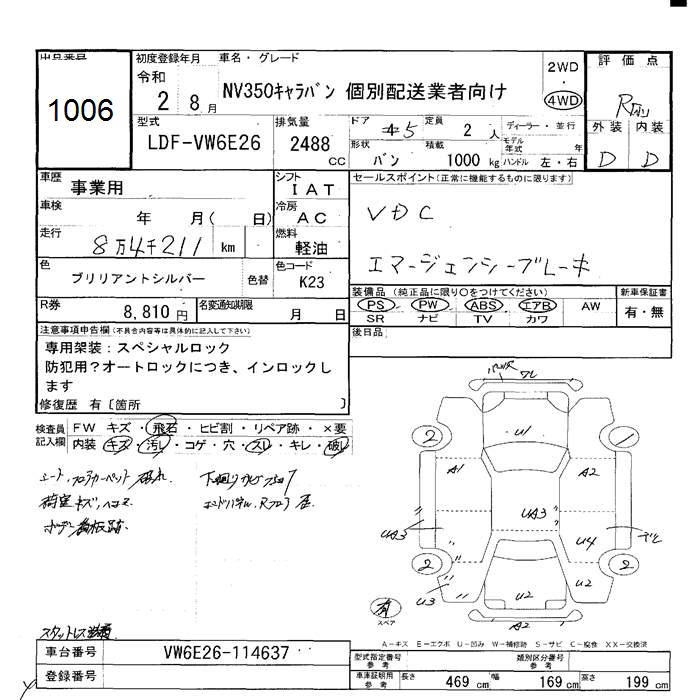 出品番号
1006
初度登録年月
令和
2 8月
車名・グレード
NV350キャラバン 個別配送業者向け
2WD
4WD
評価点
R
外装 内装
D D
型式
LDF-VW6E26
排気量
2488
CC
ドア
5
定員
2 人
形状
バン
積載
1000 kg
ディーラー・並行
モデル年式 年
ハンドル 左・右
車歴
事業用
シフト
IAT
セールスポイント(正常に機能するものに限ります)
VDC
エマージェンシーブレーキ
車検
年 月( 日)
冷房
AC
走行
8万4千211 km
燃料
軽油
色
ブリリアントシルバー
色替
色コード
K23
装備品 (純正品に限り○をつけてください)
PS PW ABS エアB AW
SR ナビ TV カワ
新車保証書
有・無
R券
8,810円
名変通知期限
月 日
後日品
注意事項申告欄(不具合内容等は具体的に記入して下さい)
専用架装:スペシャルロック
防犯用?オートロックにつき、インロックし
ます
修復歴 有〔箇所 〕
検査員記入欄
FW キズ・飛石・ヒビ割・リペア跡・×要
内装 キズ・汚レ・コゲ・穴・スレ・キレ・破レ
シート、フロアカーペット 破れ
荷室キズ、ヘコミ
ボデー看板跡
下廻り
エンドパネル、Rフロア
スタットレス
ワレ
2
U1
1
A1
A2
UA3
UA3
U4
2
U3
U2
2
U2
A2
有
スペア
A-キズ E-エクボ U-凹み W-補修跡 S-サビ C-腐食 XX-交換済
車台番号
VW6E26-114637
登録番号
型式指定番号
参考
類別区分番号
参考
車庫証明用
参考
長さ
469 cm
幅
169 cm
高さ
199 cm